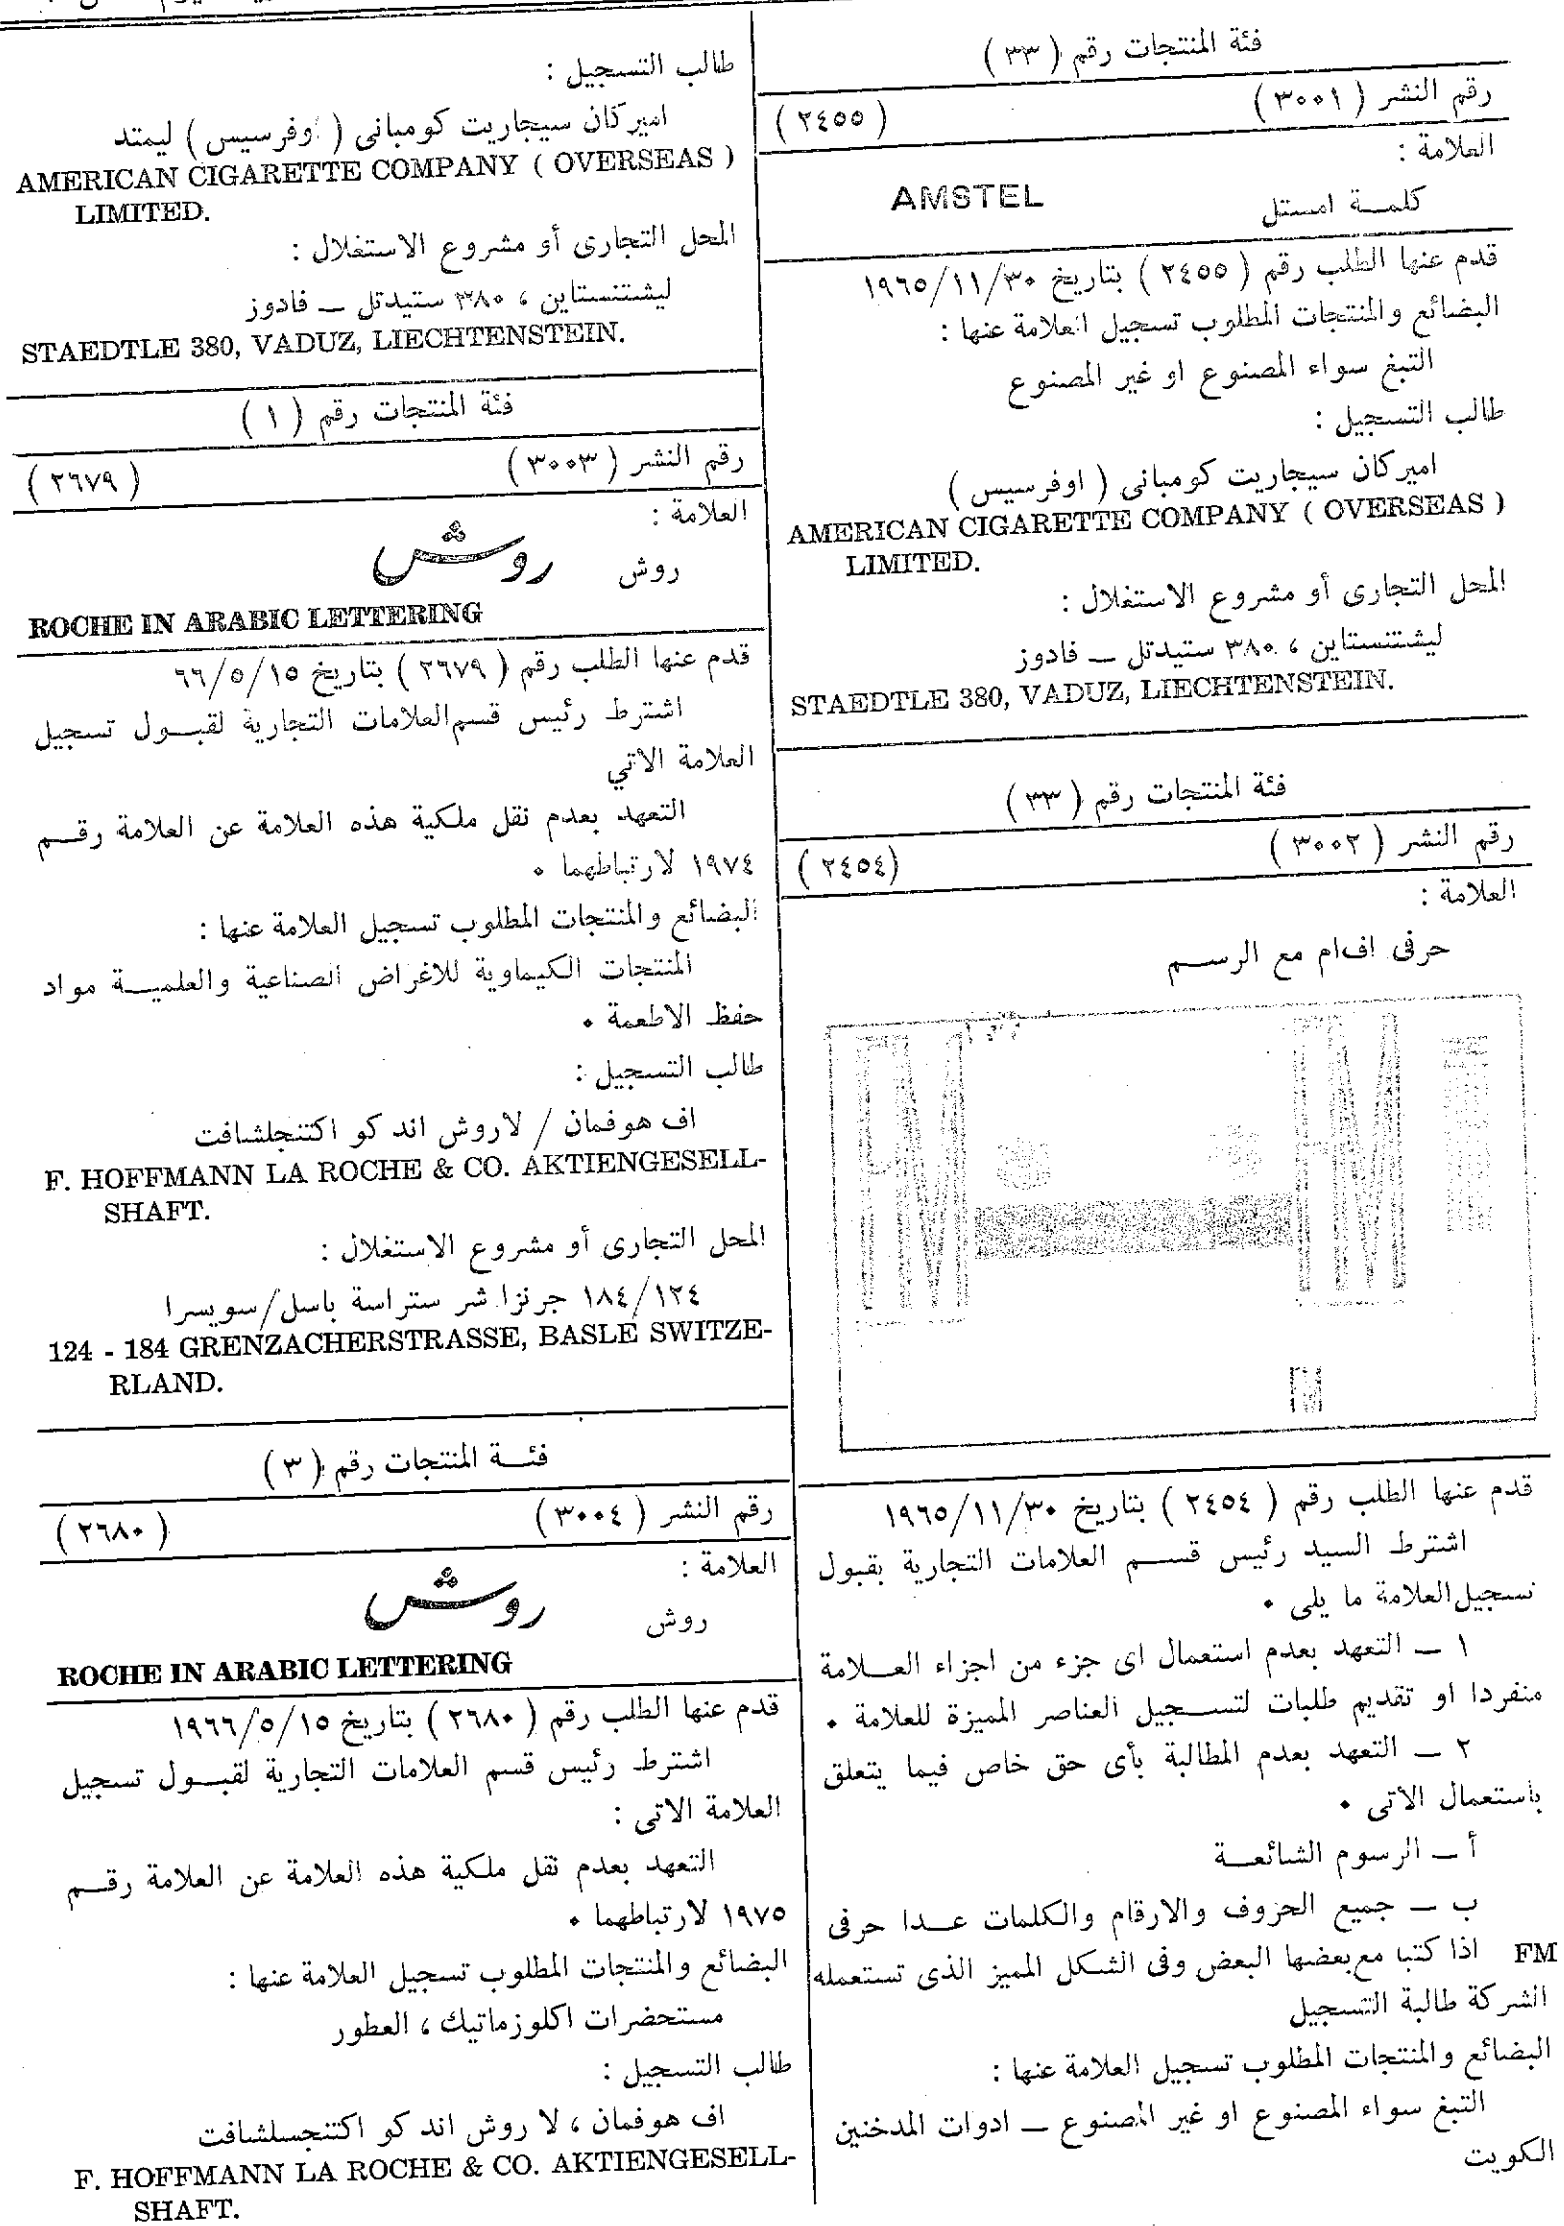 فئة المنتجات رقم ( ٣٣ )
رقم النشر ( ٣٠٠١ ) ( ٢٤٥٥ )
العلامة :
كلمـــة امستل AMSTEL
قدم عنها الطلب رقم ( ٢٤٥٥ ) بتاريخ ١٩٦٥/١١/٣٠
البضائع والمنتجات المطلوب تسجيل العلامة عنها :
التبغ سواء المصنوع او غير المصنوع
طالب التسجيل :
اميركان سيجاريت كومبانى ( اوفرسيس )
AMERICAN CIGARETTE COMPANY ( OVERSEAS )
LIMITED.
المحل التجارى أو مشروع الاستغلال :
ليشتنستاين ، ٣٨٠ ستيدتل ــ فادوز
STAEDTLE 380, VADUZ, LIECHTENSTEIN.
فئة المنتجات رقم ( ٣٣ )
رقم النشر ( ٣٠٠٢ ) (٢٤٥٤ )
العلامة :
حرفى اف،ام مع الرســـم
FM FM
FM
قدم عنها الطلب رقم ( ٢٤٥٤ ) بتاريخ ١٩٦٥/١١/٣٠
اشترط السيد رئيس قســـم العلامات التجارية بقبول
تسجيل العلامة ما يلى ٠
١ ــ التعهد بعدم استعمال اى جزء من اجزاء العـــلامة
منفردا او تقديم طلبات لتســـجيل العناصر المميزة للعلامة ٠
٢ ــ التعهد بعدم المطالبة بأى حق خاص فيما يتعلق
باستعمال الاتى ٠
أ ــ الرسوم الشائعـــة
ب ــ جميع الحروف والارقام والكلمات عـــدا حرفى
FM اذا كتبا مع بعضها البعض وفى الشكل المميز الذى تستعمله
الشركة طالبة التسجيل
البضائع والمنتجات المطلوب تسجيل العلامة عنها :
التبغ سواء المصنوع او غير المصنوع ــ ادوات المدخنين
الكويت
طالب التسجيل :
اميركان سيجاريت كومبانى ( اوفرسيس ) ليمتد
AMERICAN CIGARETTE COMPANY ( OVERSEAS )
LIMITED.
المحل التجارى أو مشروع الاستغلال :
ليشتنستاين ، ٣٨٠ ستيدتل ــ فادوز
STAEDTLE 380, VADUZ, LIECHTENSTEIN.
فئة المنتجات رقم ( ١ )
رقم النشر ( ٣٠٠٣ ) ( ٢٦٧٩ )
العلامة :
روش روش
ROCHE IN ARABIC LETTERING
قدم عنها الطلب رقم ( ٢٦٧٩ ) بتاريخ ٦٦/٥/١٥
اشترط رئيس قسم العلامات التجارية لقبـــول تسجيل
العلامة الاتي
التعهد بعدم نقل ملكية هذه العلامة عن العلامة رقـــم
١٩٧٤ لارتباطهما ٠
البضائع والمنتجات المطلوب تسجيل العلامة عنها :
المنتجات الكيماوية للاغراض الصناعية والعلميـــة مواد
حفظ الاطعمة ٠
طالب التسجيل :
اف هوفمان / لاروش اند كو اكتنجلشافت
F. HOFFMANN LA ROCHE & CO. AKTIENGESELL-
SHAFT.
المحل التجارى أو مشروع الاستغلال :
١٨٤/١٢٤ جرنزا شر ستراسة باسل/سويسرا
124 - 184 GRENZACHERSTRASSE, BASLE SWITZE-
RLAND.
فئـــة المنتجات رقم ( ٣ )
رقم النشر ( ٣٠٠٤ ) ( ٢٦٨٠ )
العلامة :
روش روش
ROCHE IN ARABIC LETTERING
قدم عنها الطلب رقم ( ٢٦٨٠ ) بتاريخ ١٩٦٦/٥/١٥
اشترط رئيس قسم العلامات التجارية لقبـــول تسجيل
العلامة الاتى :
التعهد بعدم نقل ملكية هذه العلامة عن العلامة رقـــم
١٩٧٥ لارتباطهما ٠
البضائع والمنتجات المطلوب تسجيل العلامة عنها :
مستحضرات اكلوزماتيك ، العطور
طالب التسجيل :
اف هوفمان ، لا روش اند كو اكتنجسلشافت
F. HOFFMANN LA ROCHE & CO. AKTIENGESELL-
SHAFT.